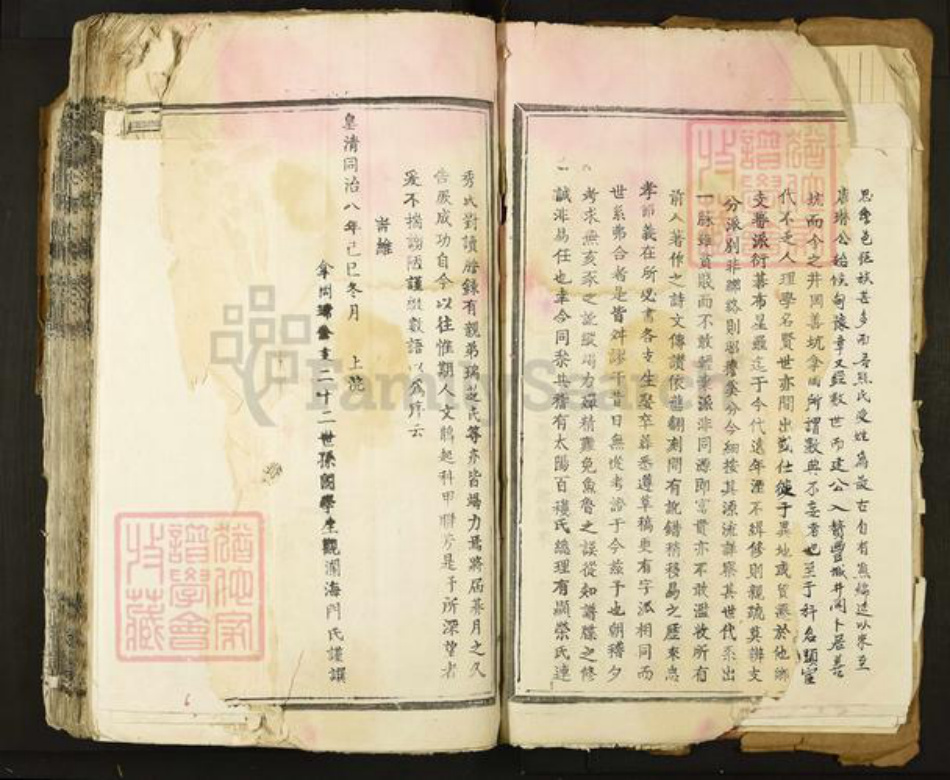 思詹邑鉅族甚多而吾熊氏受姓為最古自有熊端迹以來至
康璡公始候甸豫章又經數世而建公入贅豐城井岡卜居善
坑而今之井岡善坑拿岡所謂數典不忘者也至于科名顯宦
代不乏人理學名賢世亦間出或仕徙于異地或貿遷於他鄉
支蕃派衍棊布星羅迄于今代遠年湮不緝修則親疏莫辦支
分派別非聯絡則彪攈奚分今細按其源流詳察其世代系出
一脉雖貧賤而不敢輕棄派非同源即富貴亦不敢濫收所有
前人著作之詩文傳讚依舊翻刻間有訛錯稍移易之歷來忠
孝節義在所必書各支生娶卒葬悉遵草稿更有字派相同而
世系弗合者是皆舛謬于昔日無從考證于今茲予也朝稽夕
考求無亥豕之訛竭力殫精難免魚魯之誤從知譜牒之修
誠非易任也幸今同黎共稽有太陽百禳氏總理有顯榮氏連
秀氏對讀謄錄有親弟瑞芝氏等亦皆竭力焉將屆朞月之久
告厥成功自今以往惟期人文鵲起科甲聯芳是予所深望者
爰不揣謭陋謹綴數語以為序云
峕維
皇清同治八年己巳冬月 上浣
拿岡 二十二世孫國學生觀瀾海門氏謹譔
譜學會
收藏
FamilySearch
譜學會
收藏
6